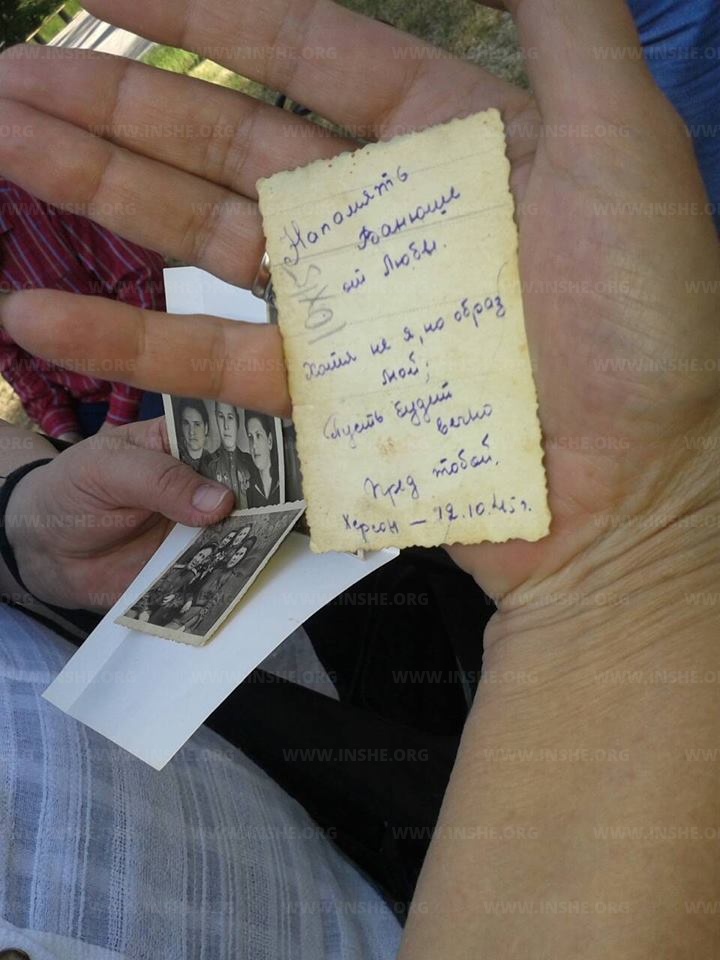 Напомять
Ванюше
от Любы.
10X15
Хотя не я, но образ
мой;
Пусть будит
вечно
Пред тобой.
Херсон — 12.10.45 г.
WWW.INSHE.ORG